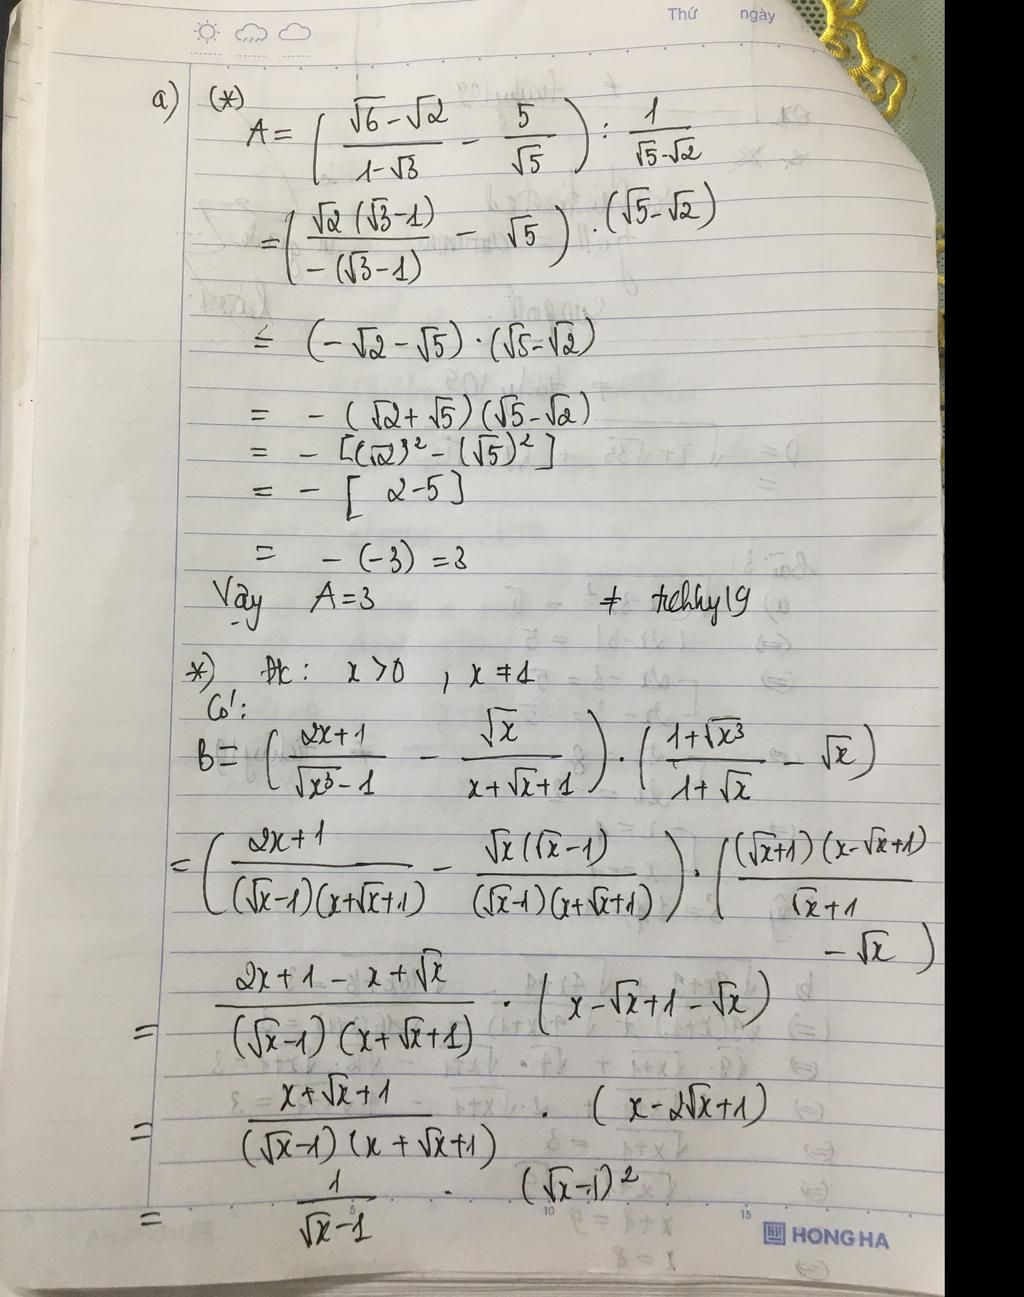 Thứ ngày
a) (*)
A = ( (√6 - √2)/(1 - √3) - 5/√5 ) : 1/(√5 - √2)
= ( √2 (√3 - 1)/(-(√3 - 1)) - √5 ) · (√5 - √2)
= (-√2 - √5) · (√5 - √2)
= - (√2 + √5) (√5 - √2)
= - [(√2)² - (√5)²]
= - [ 2 - 5 ]
= - (-3) = 3
Vậy A = 3
*) Đk: x > 0 , x ≠ 1
Có:
B = ( (2x + 1)/(√x³ - 1) - √x/(x + √x + 1) ) · ( (1 + √x³)/(1 + √x) - √x )
= ( (2x + 1)/((√x - 1)(x + √x + 1)) - √x(√x - 1)/((√x - 1)(x + √x + 1)) ) · ( (√x + 1)(x - √x + 1)/(√x + 1)
- √x )
= (2x + 1 - x + √x)/((√x - 1)(x + √x + 1)) · (x - √x + 1 - √x)
= (x + √x + 1)/((√x - 1)(x + √x + 1)) · (x - 2√x + 1)
= 1/(√x - 1) · (√x - 1)²
5 10 15
HONG HA